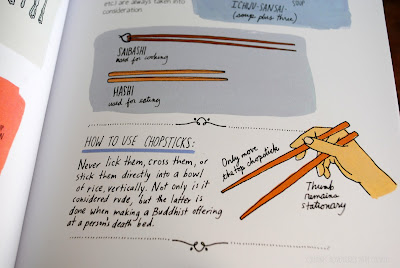 etc.) are always taken into
consideration.
ICHIJU-SANSAI-
(soup plus three)
SOUP
SAIBASHI
used for cooking
HASHI
used for eating
HOW TO USE CHOPSTICKS:
Never lick them, cross them, or
stick them directly into a bowl
of rice, vertically. Not only is it
considered rude, but the latter is
done when making a Buddhist offering
at a person's death bed.
Only move
the top chopstick
Thumb
remains
stationary